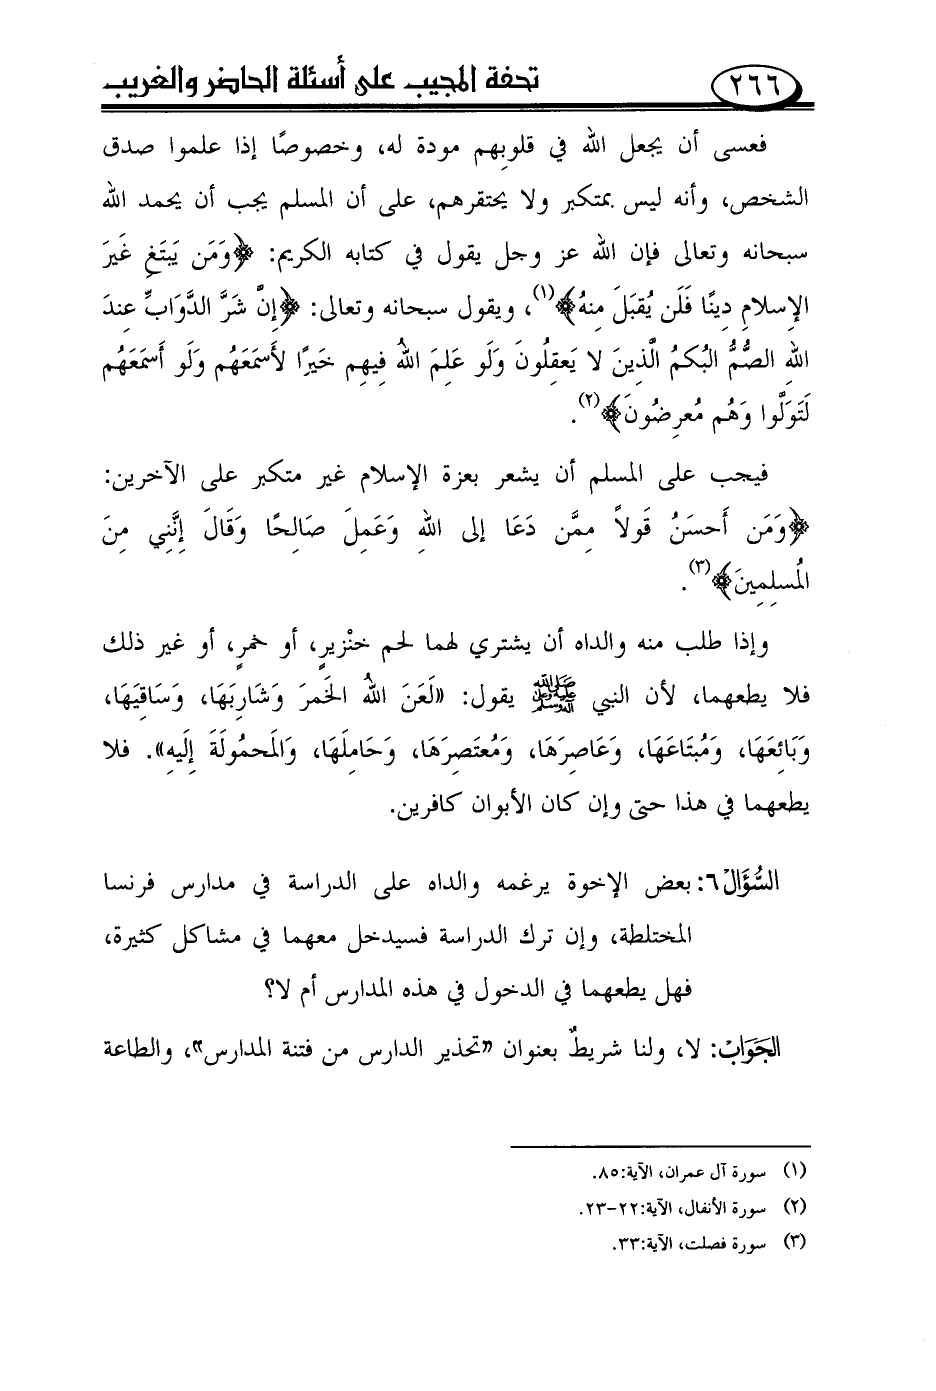 ٢٦٦
تحفة المجيب على أسئلة الحاضر والغريب
فعسى أن يجعل الله في قلوبهم مودة له، وخصوصًا إذا علموا صدق
الشخص، وأنه ليس بمتكبر ولا يحتقرهم، على أن المسلم يجب أن يحمد الله
سبحانه وتعالى فإن الله عز وجل يقول في كتابه الكريم: ﴿وَمَن يَبتَغِ غَيرَ
الإِسلامِ دِينًا فَلَن يُقبَلَ مِنهُ﴾(١)، ويقول سبحانه وتعالى: ﴿إِنَّ شَرَّ الدَّوَابِّ عِندَ
اللهِ الصُّمُّ البُكمُ الَّذِينَ لا يَعقِلُونَ وَلَو عَلِمَ اللهُ فِيهِم خَيرًا لأَسمَعَهُم وَلَو أَسمَعَهُم
لَتَوَلَّوا وَهُم مُعرِضُونَ﴾(٢).
فيجب على المسلم أن يشعر بعزة الإسلام غير متكبر على الآخرين:
﴿وَمَن أَحسَنُ قَولاً مِمَّن دَعَا إِلى اللهِ وَعَمِلَ صَالِحًا وَقَالَ إِنَّنِي مِنَ
المُسلِمِينَ﴾(٣).
وإذا طلب منه والداه أن يشتري لهما لحم خنْزيرٍ، أو خمرٍ، أو غير ذلك
فلا يطعهما، لأن النبي ﷺ يقول: «لَعَنَ اللهُ الخَمرَ وَشَارِبَهَا، وَسَاقِيَهَا،
وَبَائِعَهَا، وَمُبتَاعَهَا، وَعَاصِرَهَا، وَمُعتَصِرَهَا، وَحَامِلَهَا، وَالمَحمُولَةَ إِلَيهِ». فلا
يطعهما في هذا حتى وإن كان الأبوان كافرين.
السُّؤَالُ٦: بعض الإخوة يرغمه والداه على الدراسة في مدارس فرنسا
المختلطة، وإن ترك الدراسة فسيدخل معهما في مشاكل كثيرة،
فهل يطعهما في الدخول في هذه المدارس أم لا؟
الجَوَابُ: لا، ولنا شريطٌ بعنوان «تحذير الدارس من فتنة المدارس»، والطاعة
(١) سورة آل عمران، الآية:٨٥.
(٢) سورة الأنفال، الآية:٢٢-٢٣.
(٣) سورة فصلت، الآية:٣٣.